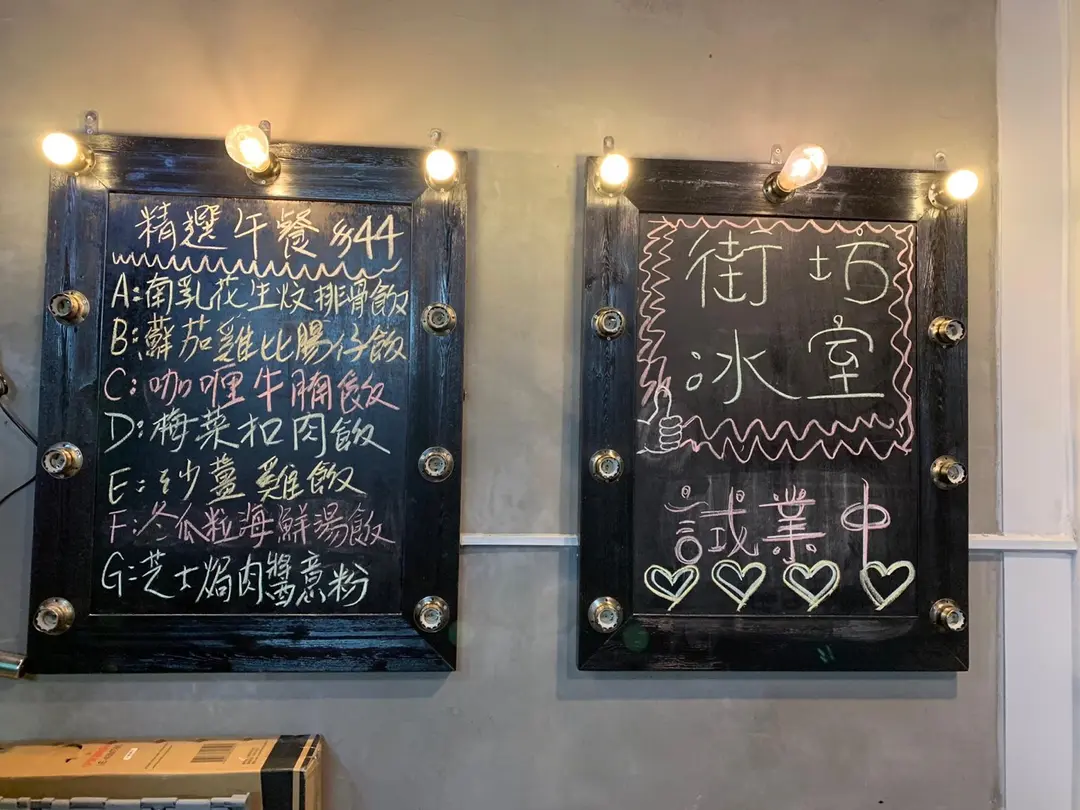 精選午餐 $44
A:南乳花生炆排骨飯
B:蘇茄雞比腸仔飯
C:咖喱牛腩飯
D:梅菜扣肉飯
E:沙薑雞飯
F:冬瓜粒海鮮湯飯
G:芝士焗肉醬意粉
街坊
冰室
試業中